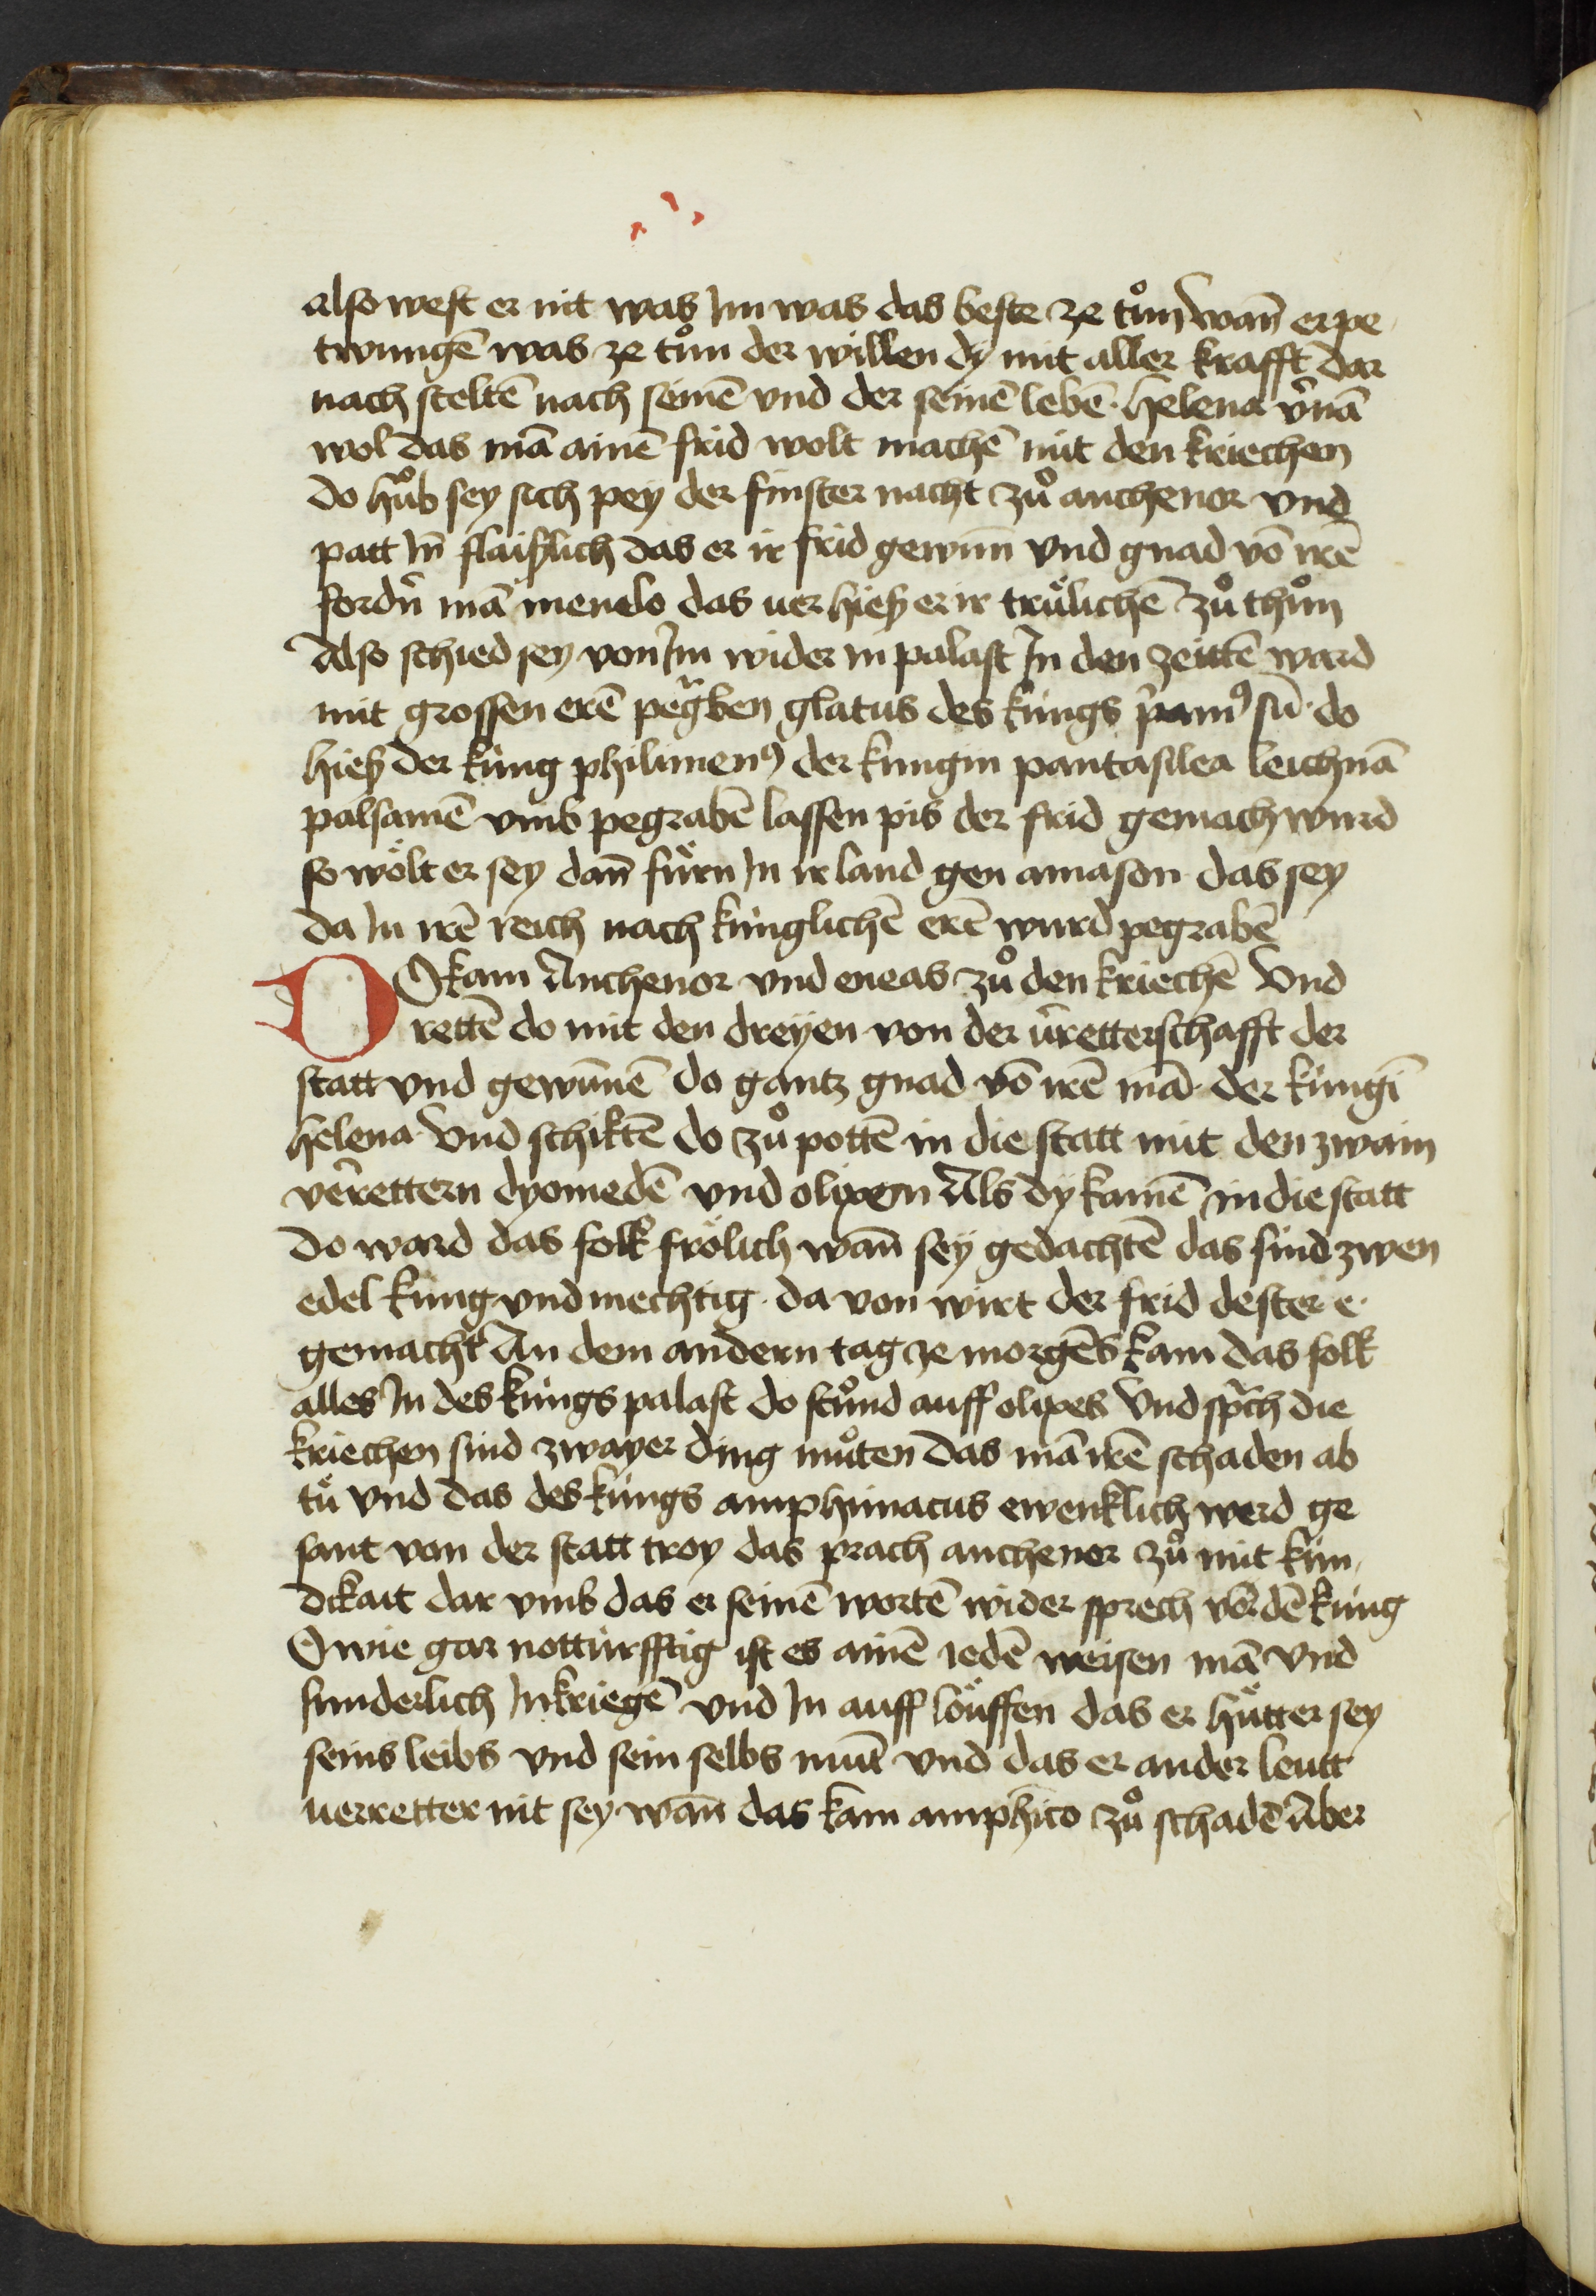 also west er nit was Im was das beste ze tůn wañ er pe
twungē was ze tůn der willen dy mit aller krafft dar
nach steltē nach seinē vnd der seinē lebē · helena v̉nā
wol das mā ainē frid wolt machē mit den kriechen
do hůb sey sich pey der finster nacht zů anthenor vnd
patt In̄ flaißlich das er ir frid gewun̄ vnd gnad vō irē
fordn̉ mā menelo das uer hieß er ir trülichē zů thůn
Also schied sey von Im wider in palast In den zeittē ward
mit grossen erē pegᵃben glatus des küngs pᵢam⁹ sū · do
hieß der küng philimen⁹ der kungin pantasilea leichnā
palsamē vmb pegrabē lassen pis der frid gemach wurd
so wölt er sey dan̄ fürn In ir land gen amason das sey
da In irē reich nach künglichē erē wurd pegrabē
DO kam Anthenor vnd eneas zů den kriechē Vnd
rettē do mit den dreyen von der v̉retterschafft der
statt vnd gewūnē do gantz gnad vō irē mā · der küngī
helena Vnd schiktē do zů pottē in die statt mit den zwain
vẻrettern dyomedē vnd olixen Als dy kamē in die statt
do ward das folk frölich wañ sey gedachtē das sind zwen
edel küng vnd mechtig · da von wirt der frid dester e ·
gemacht An dem andern tag ze morgēs kam das folk
alles In des küngs palast do stůnd auff olixes Vnd spᵃch die
kriechen sind zwayer ding můten das mā irē schaden ab
tü vnd das des küngs amphimacus ewenklich werd ge
sant von der statt troy das prach anthenor zů mit kün
dikait dar vmb das er seinē wortē wider sprech vor dē küng
O wie gar notturfftig ist es ainē iedē weisen mā vnd
sunderlich In kriegē vnd In auff löuffen das er hütter sey
seins leibs vnd sein selbs mūt vnd das er ander leutt
uerretter nit sey wañ das kam amphico zů schadē Aber